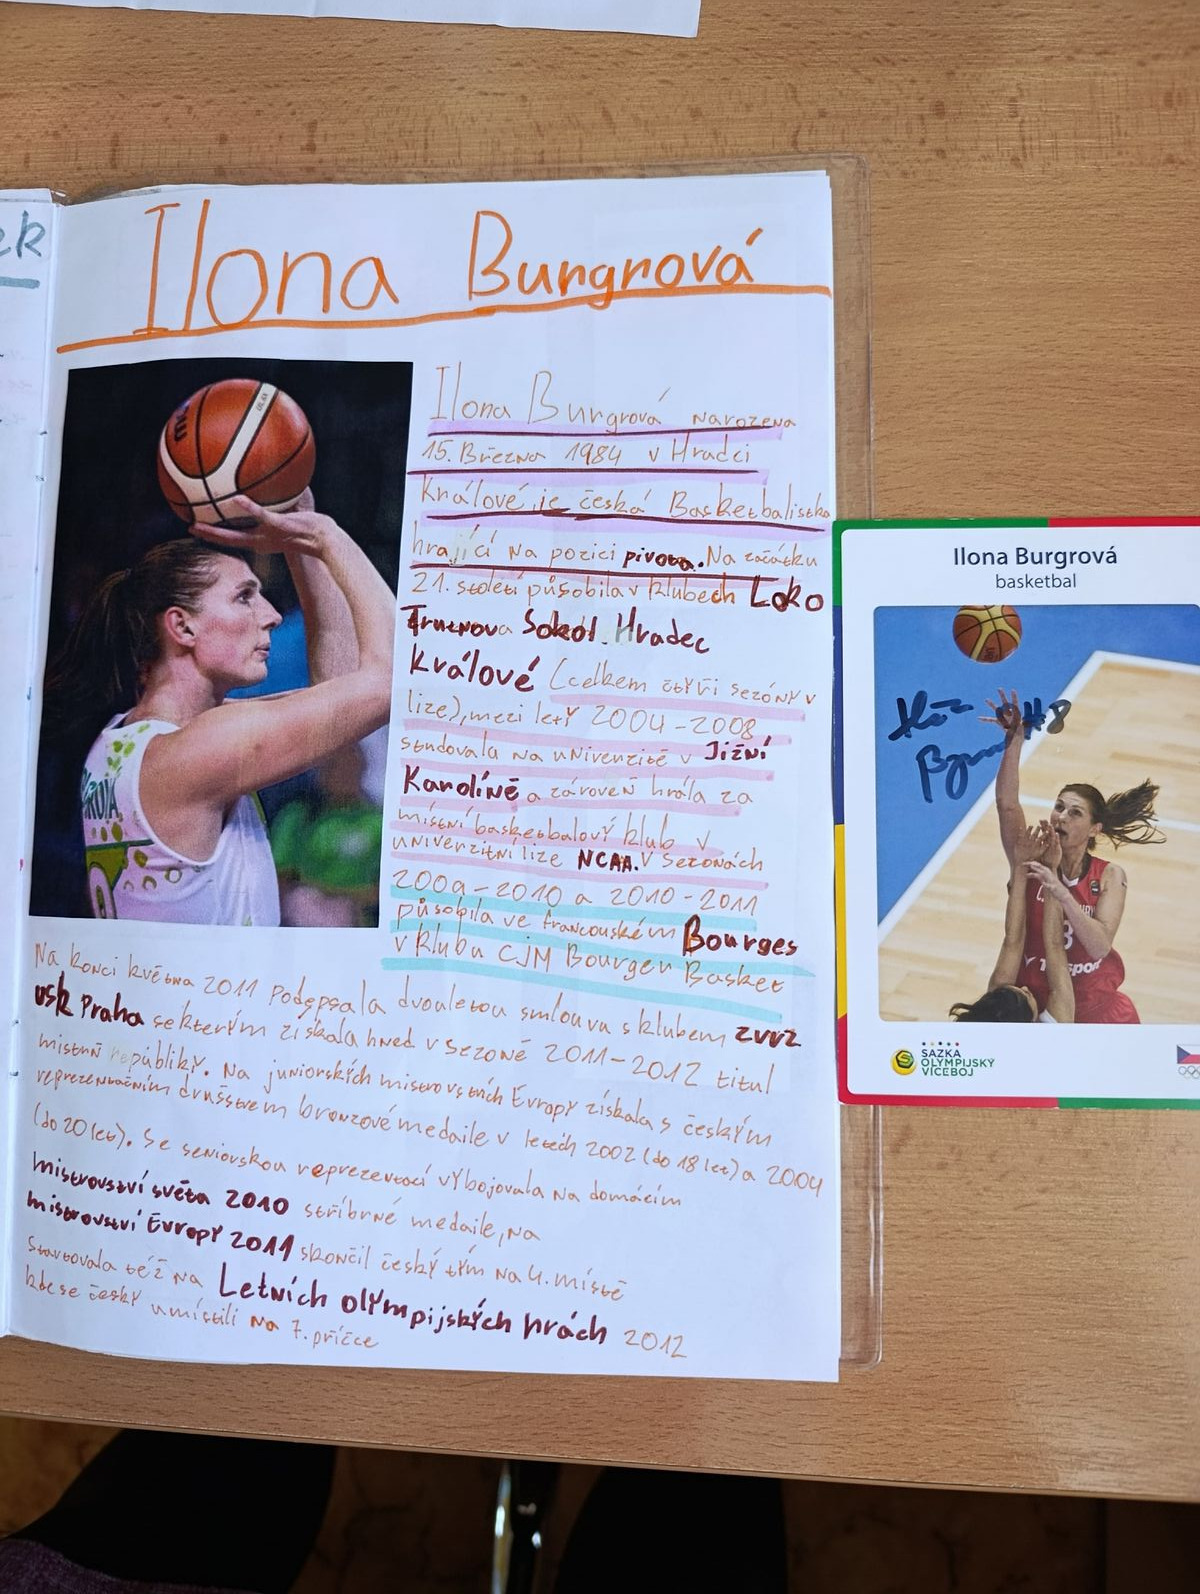 Ilona Burgrová
Ilona Burgrová narozena
15. Března 1984 v Hradci
Králové je česká Basketbalistka
hrající na pozici pivota. Na začátku
21. století působila v klubech Loko
Trutnov a Sokol Hradec
Králové (celkem čtyři sezóny v
lize), mezi lety 2004-2008
studovala na univerzitě v Jižní
Karolíně a zároveň hrála za
místní basketbalový klub v
univerzitní lize NCAA. V sezonách
2009-2010 a 2010-2011
působila ve francouském Bourges
v klubu CJM Bourges Basket
Na konci května 2011 Podepsala dvouletou smlouvu s klubem ZVVZ
USK Praha se kterým získala hned v sezoně 2011-2012 titul
mistrň republiky. Na juniorských mistrovstních Evropy získala s českým
reprezentačním družstvem bronzové medaile v letech 2002 (do 18 let) a 2004
(do 20 let). Se seniorskou reprezentací vybojovala na domácím
mistrovství světa 2010 stříbrné medaile, na
mistrovství Evropy 2011 skončil český tým na 4. místě
Startovala též na Letních olympijských hrách 2012
kde se česky umístili na 7. příčce
Ilona Burgrová
basketbal
#8
SAZKA
OLYMPIJSKÝ
VÍCEBOJ